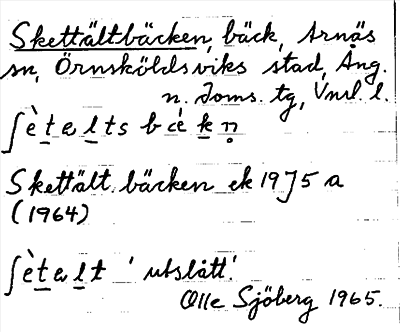 Skettältbäcken, bäck, Arnäs
sn, Örnsköldsviks stad, Ång.
n. doms. tg, Vnrl l.
ʃètalts bćekn̥
Skettält.bäcken ek 19J5 a
(1964)
ʃètalt 'utslått'.
Olle Sjöberg 1965.